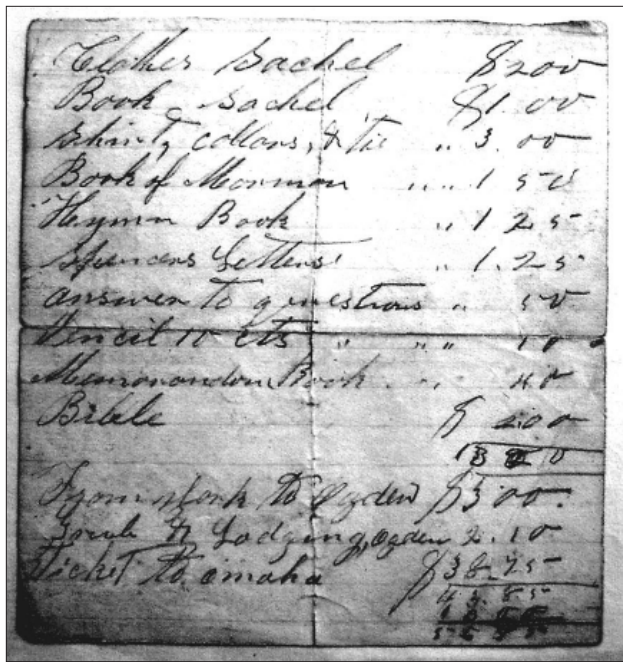 Clothes Sachel $2 00
Book Sachel $1. 00
Shirt, collars, & tie " 3. 00
Book of Mormon " " 1 50
Hymn Book " 1 25
Spencers Letters " 1. 25
answer to questions " 50
Pencil 10 cts " " " 10
Memorandom Book " " 40
Bible $ 2.00
13
From to Ogden $3 00.
& Lodging, Ogden 2. 10
Ticket To omaha $38.75
43. 85